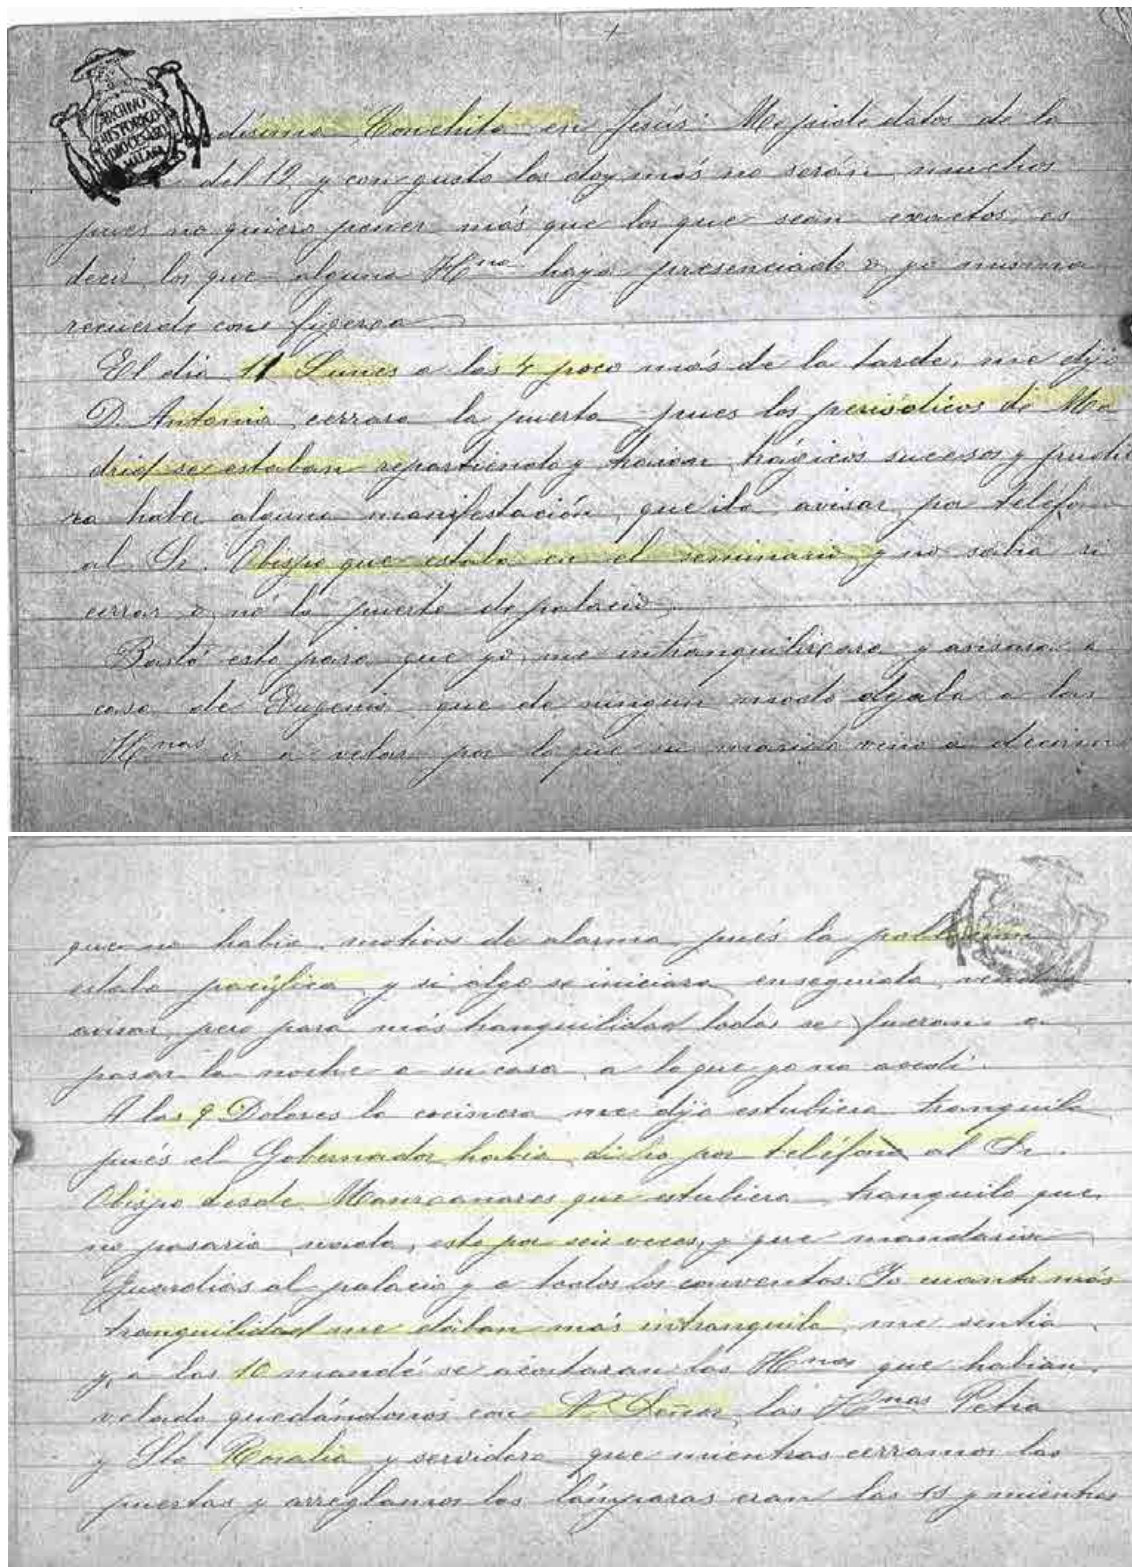 +
ARCHIVO HISTORICO DIOCESANO MALAGA
dísima Conchita en Jesús: Me pide datos de la
del 12, y con gusto los doy más no serán muchos
pues no quiero poner más que los que sean exactos, es
decir los que alguna H.na haya presenciado o yo misma
recuerdo con fijeza
El dia 11 Lunes a las 4 poco más de la tarde, me dijo
D. Antonio cerrara la puerta pues los periódicos de Ma
drid se estaban repartiendo y traian trágicos sucesos y pudie
ra haber alguna manifestación, que iba avisar por teléfono
al Sr. Obispo que estaba en el seminario y no sabia si
cerrar o nó la puerta de palacio.
Bastó esto para que yo me intranquilizara y avisara a
casa de Eugenia que de ningun modo dejaba a las
H.nas ir a velar por lo que su marido vino a decirme
que no habia motivos de alarma, pués la población
estaba pacífica y si algo se iniciara enseguida vendria
avisar, pero para más tranquilidad todas se fueran a
pasar la noche a su casa, a lo que yo no accedí.
A las 9 Dolores la cocinera me dijo estubiera tranquila
pués el Gobernador habia dicho por teléfono al Sr.
Obispo desde Manzanares que estubiera tranquilo que
no pasaria nada, esto por seis veces, y que mandaria
Guardias al palacio y a todos los conventos. Yo cuanto más
tranquilidad me daban más intranquila me sentia
y, a las 10 mandé se acostaran las H.nas que habian
velado quedándonos con N. Señor las H.nas Petra
y Sta Rosalia y servidora que mientras cerramos las
puertas y arreglamos las lámparas eran las 11 y mientras